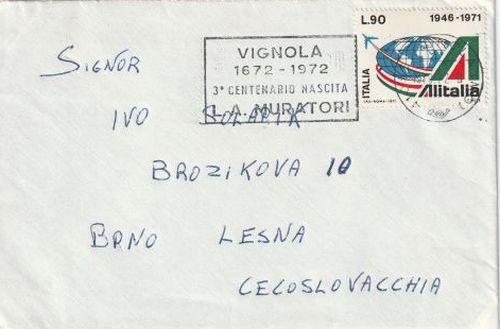 L.90 1946-1971
ITALIA
Alitalia
VIGNOLA
1672-1972
3° CENTENARIO NASCITA
L.A. MURATORI
SIGNOR
IVO SOLARIK
BROZIKOVA 10
BRNO LESNA
CECOSLOVACCHIA